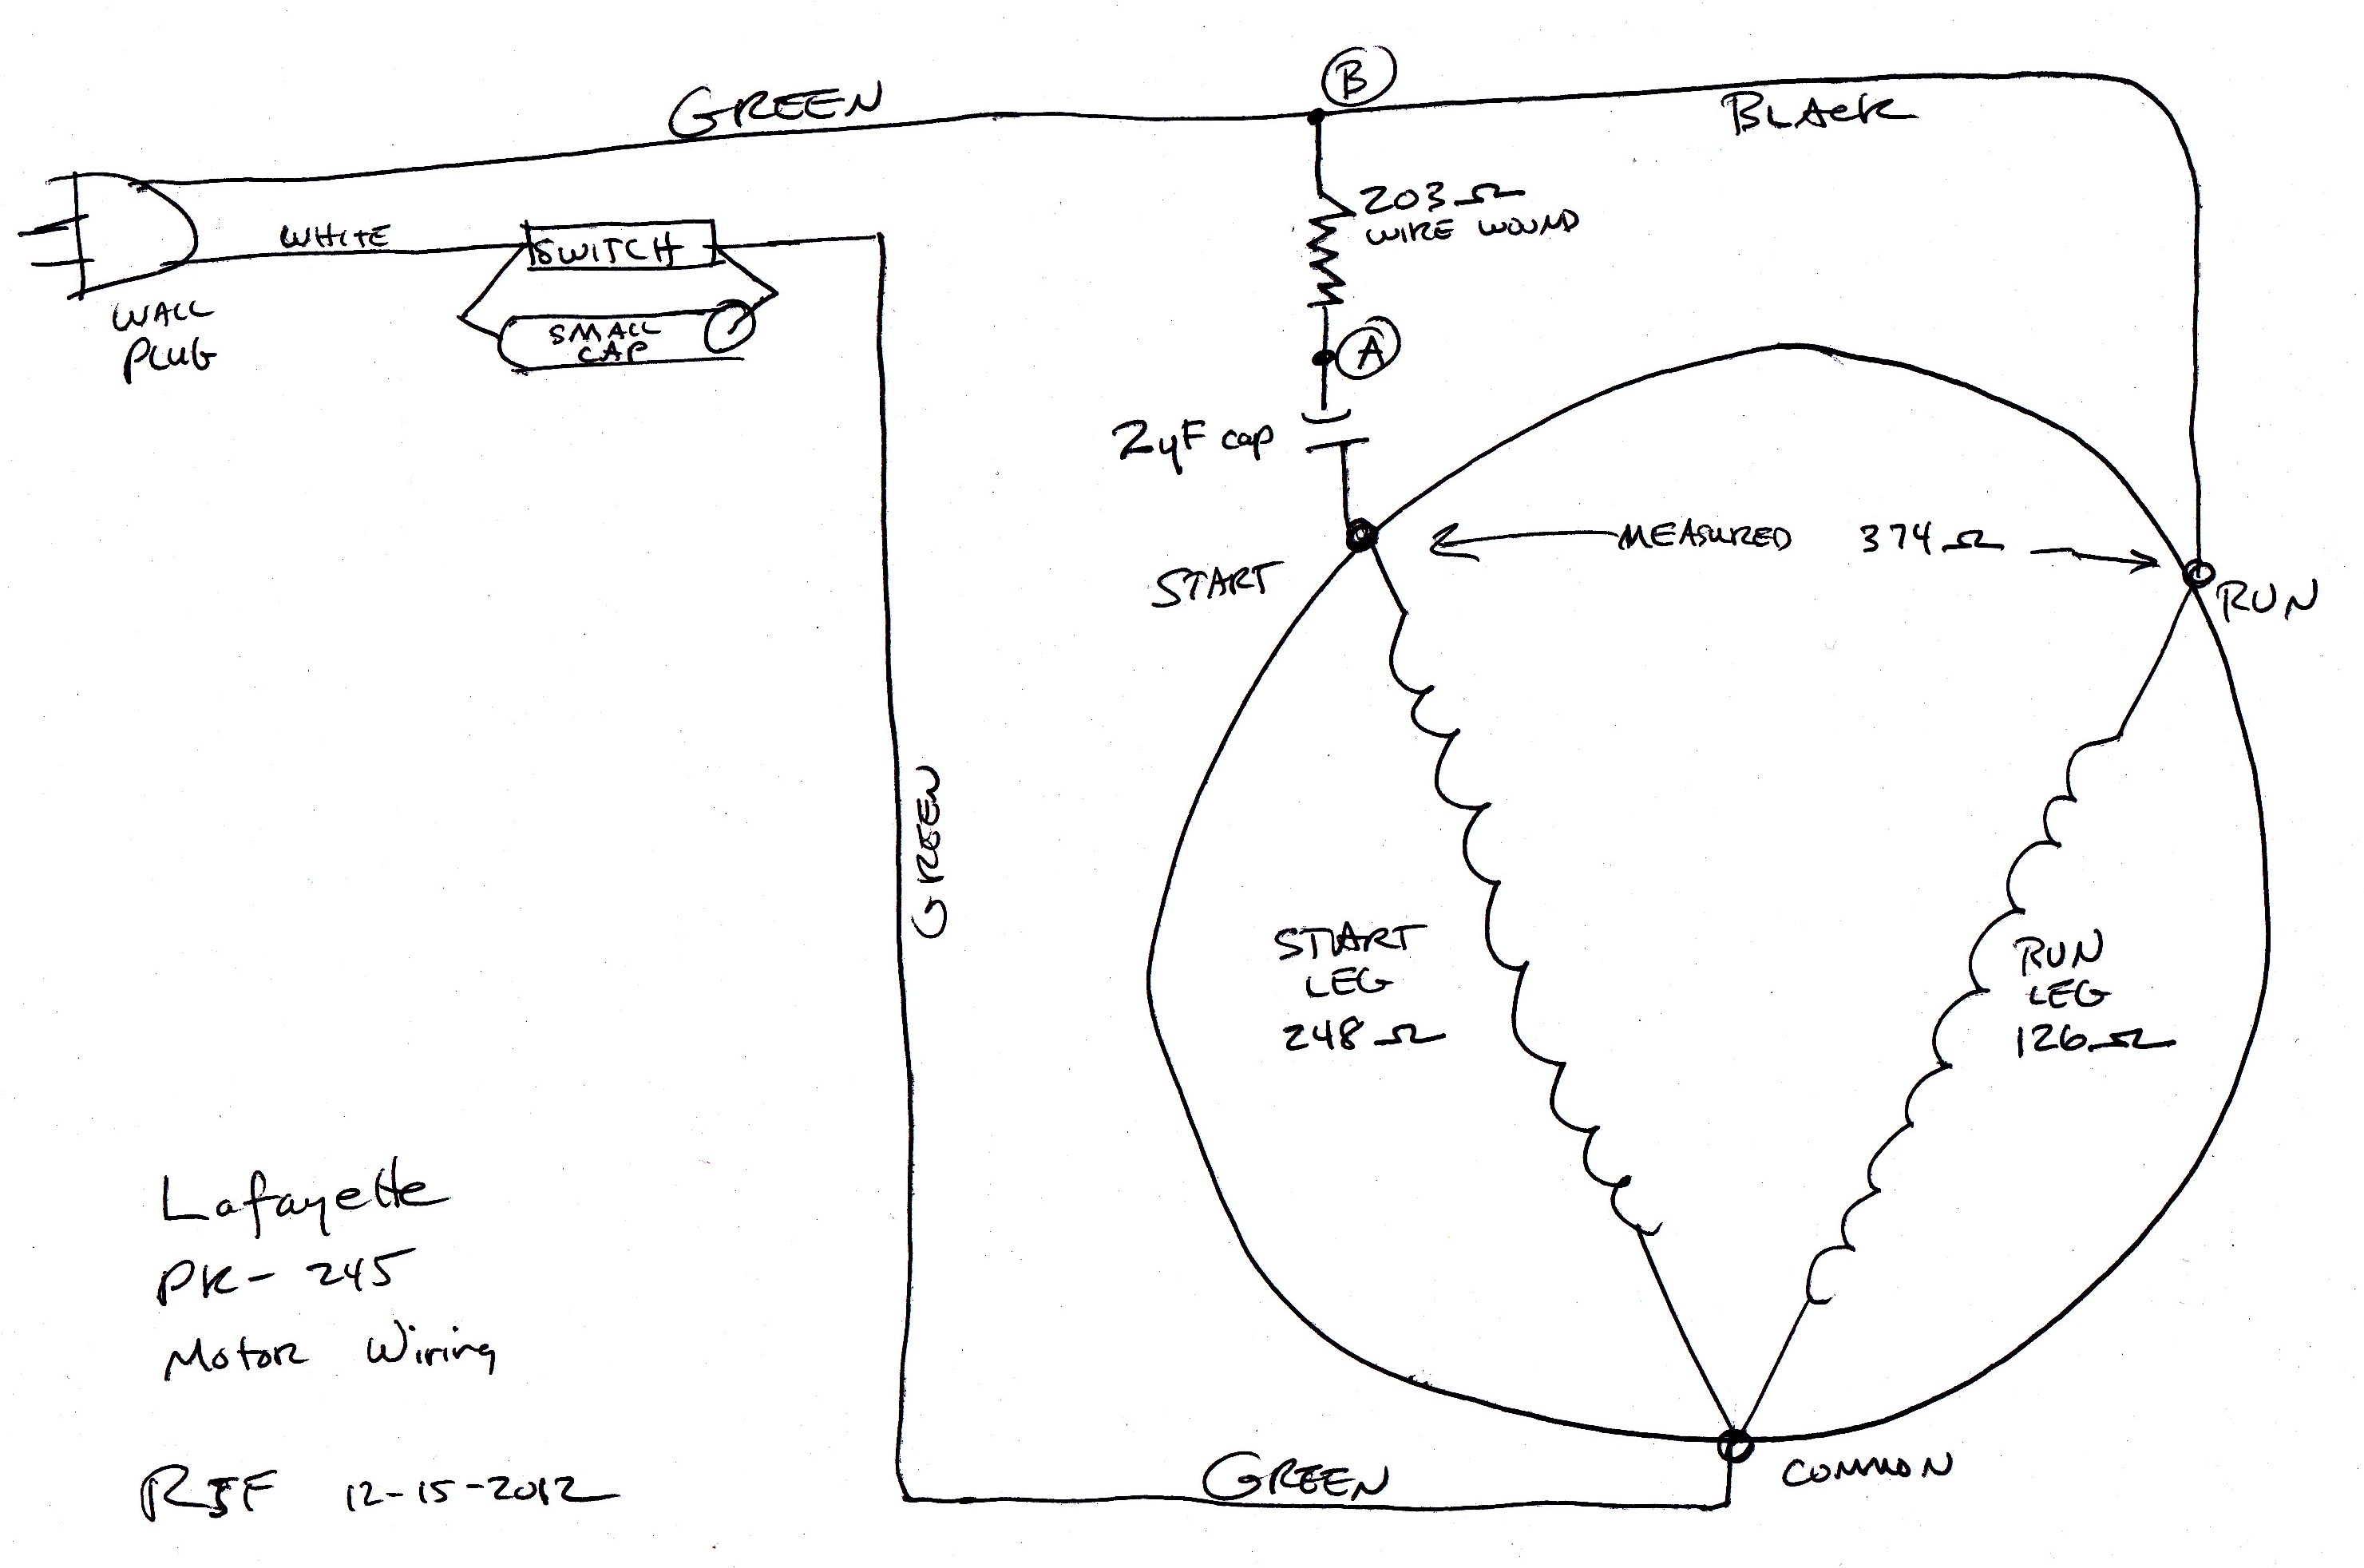 B
GREEN
BLACK
203Ω
WIRE WOUND
WHITE
SWITCH
WALL
PLUG
SMALL
CAP
A
2µF cap
MEASURED 374Ω
START
RUN
GREEN
START
LEG
248Ω
RUN
LEG
126Ω
Lafayette
PK-245
Motor Wiring
GREEN
COMMON
RJF 12-15-2012